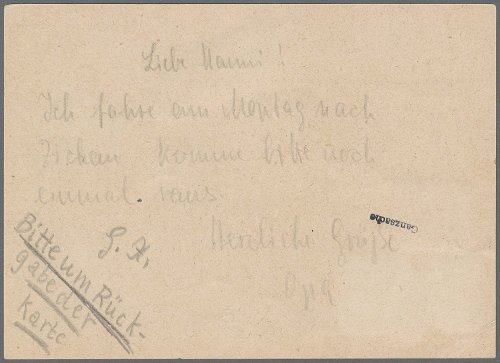 Liebe Mammi!
Ich fahre am Montag nach
komme bitte noch
einmal raus.
Herzliche Grüße
Opa
G. F.
Bitte um Rück-
gabe der
Karte
Ganzsache